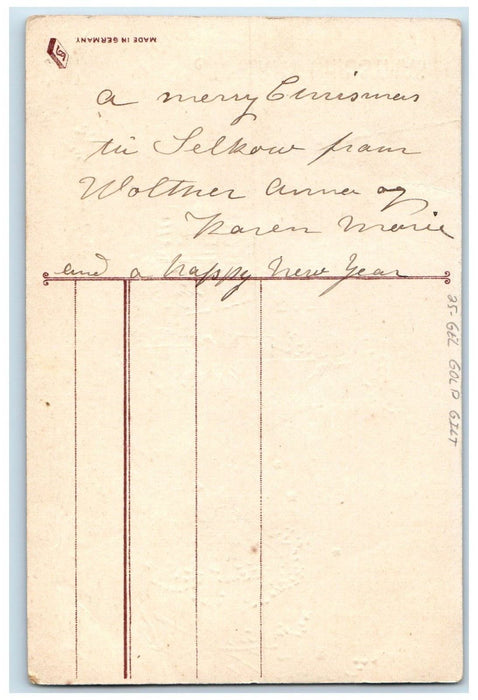 MADE IN GERMANY
a merry Chrismas
til Selkow from
Woltner Anna og
Karen Marie
and a happy New Year
25- GEL GOLD GILT